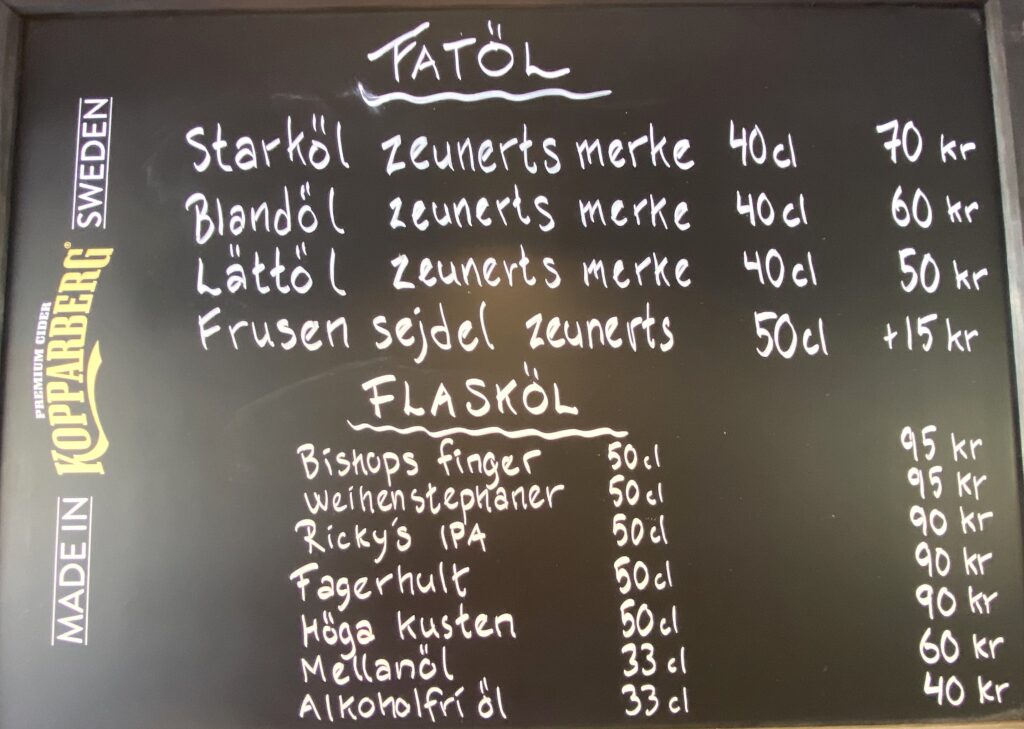 FATÖL
Starköl zeunerts merke 40cl 70 kr
Blandöl zeunerts merke 40cl 60 kr
Lättöl zeunerts merke 40cl 50 kr
Frusen sejdel zeunerts 50cl +15 kr
FLASKÖL
Bishops finger 50cl 95 kr
weihenstephaner 50cl 95 kr
Ricky's IPA 50cl 90 kr
Fagerhult 50cl 90 kr
Höga kusten 50cl 90 kr
Mellanöl 33 cl 60 kr
Alkoholfri öl 33 cl 40 kr
MADE IN
PREMIUM CIDER
KOPPARBERG®
SWEDEN